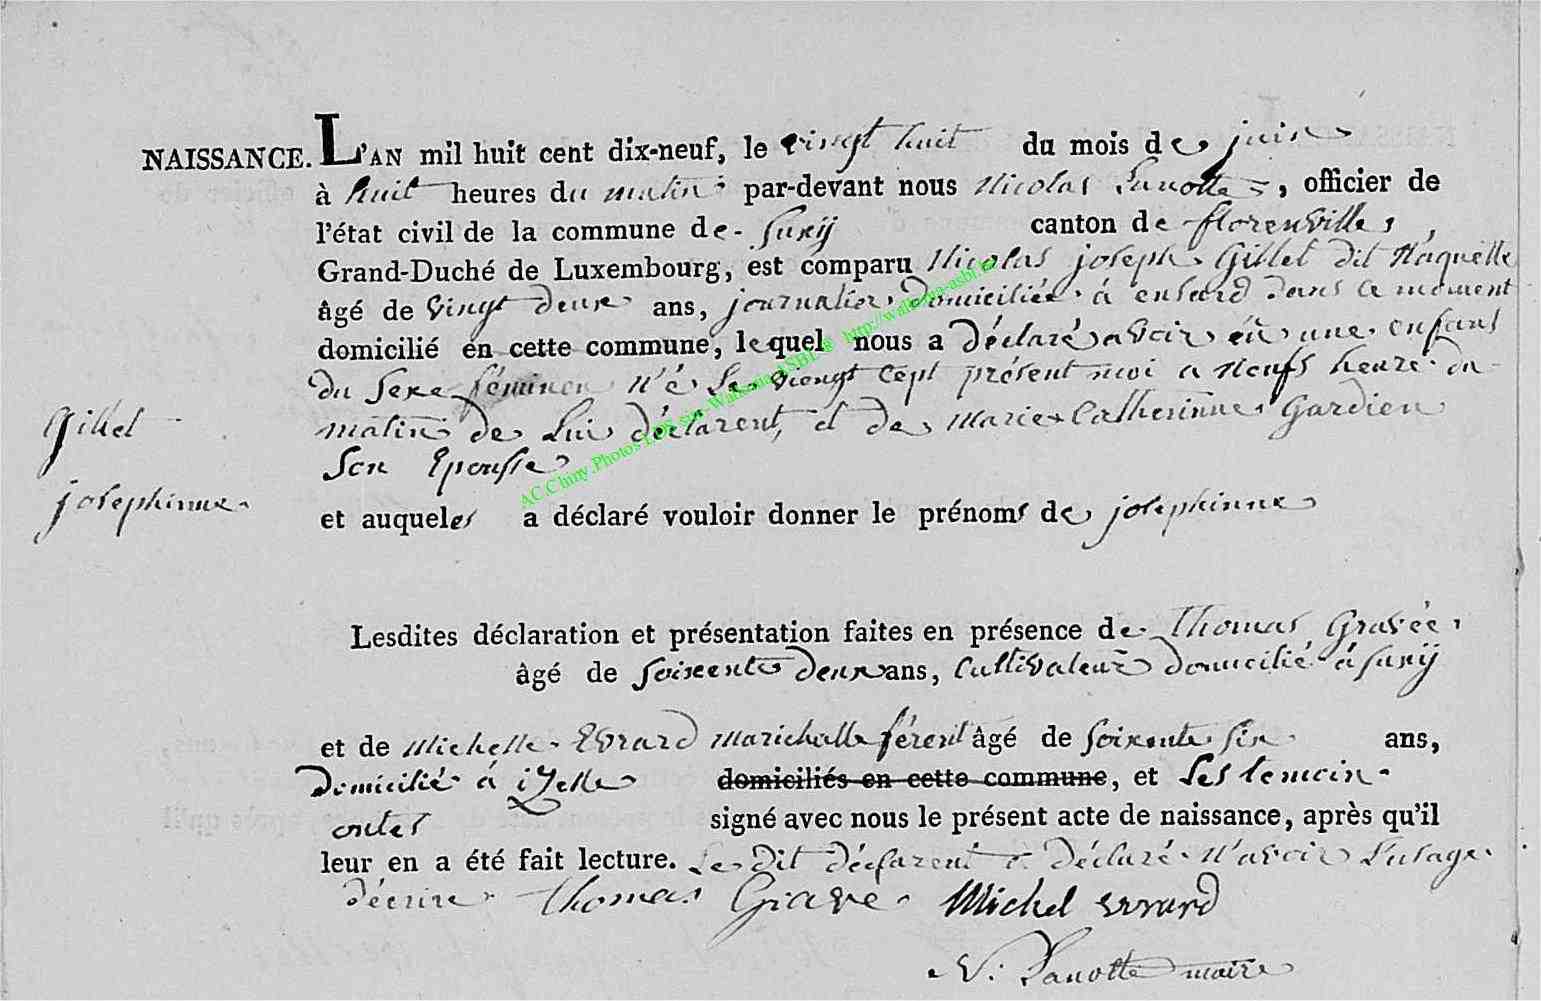 NAISSANCE. L'AN mil huit cent dix-neuf, le vingt huit du mois de juin
à huit heures du matin par-devant nous Nicolas Lanotte, officier de
l'état civil de la commune de Suxÿ canton de florenville,
Grand-Duché de Luxembourg, est comparu Nicolas joseph Gillet dit Naquelle
âgé de vingt deux ans, journalier domiciliée à ensard dans ce moment
domicilié en cette commune, lequel nous a déclaré avoir eü une enfant
du Sexe féminen né Le viengt cept présent moi a neufs heure du
matin de Lui déclarent, et de marie Catherinne Gardien
Son Epousse
Gillet
josephinne
et auqueles a déclaré vouloir donner le prénoms de josephinne
Lesdites déclaration et présentation faites en présence de Thomas Gravée
âgé de soixente deux ans, Cultivateur domicilié à Suxÿ
et de Michelle Evrard marichalle férent âgé de soixente six ans,
Domicilié à izelle domiciliés en cette commune, et Les temoin
ontes signé avec nous le présent acte de naissance, après qu'il
leur en a été fait lecture. Le dit déclarent a déclaré n'avoir L'usage
décrire Thomas Gravé Michel evrard
N. Lanotte maire
AC.Cluny.Photos LDS sur Wallonia ASBL @ http://wallonia-asbl.be